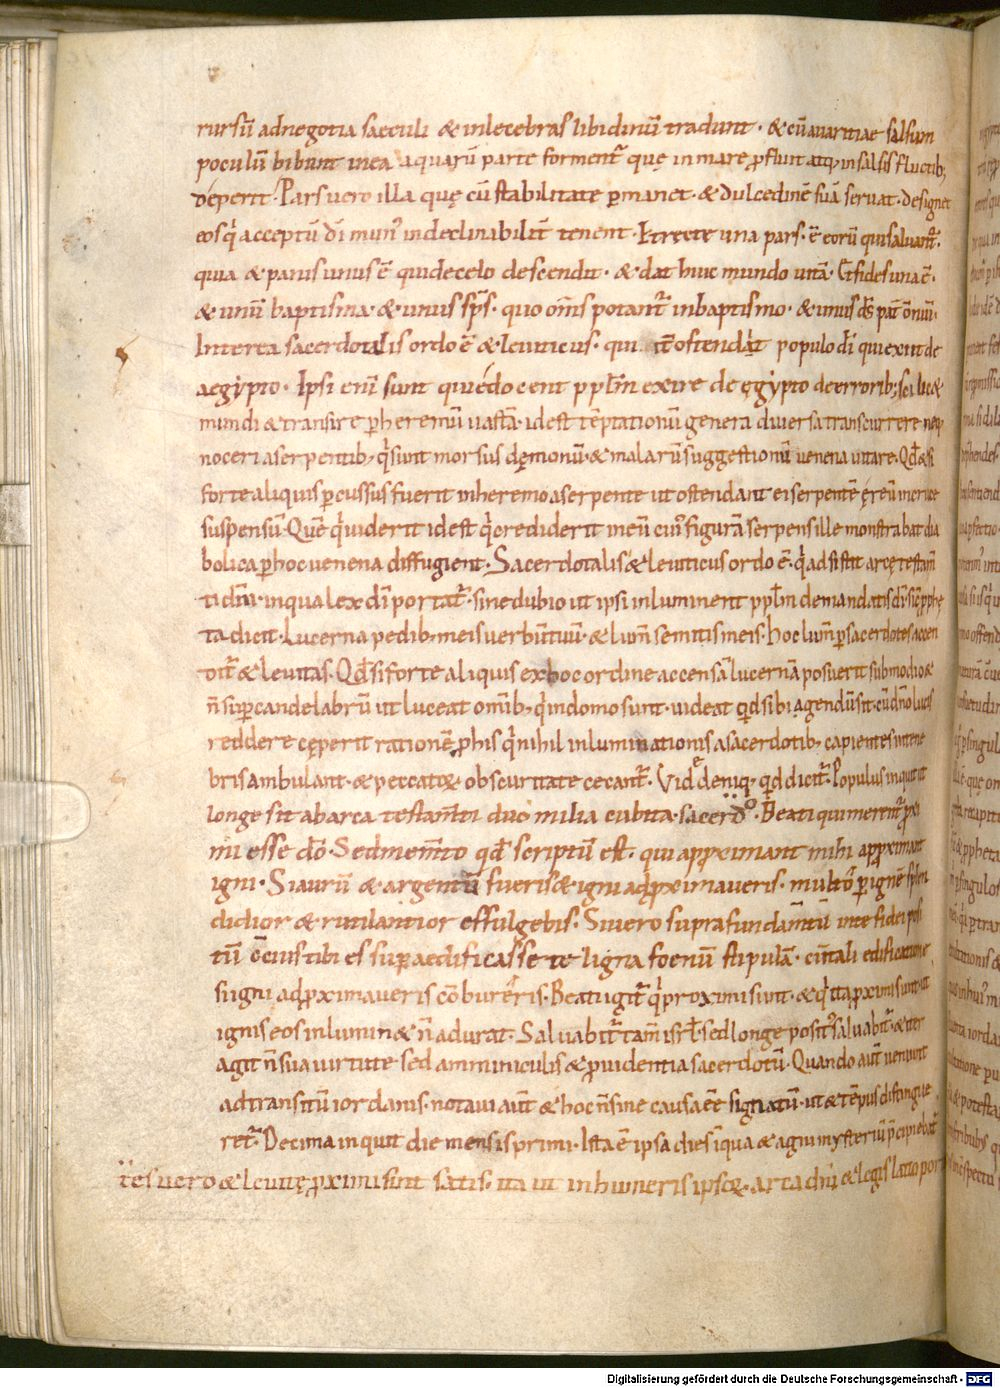 rursū adnegotia saeculi & inlecebras libidinū tradunt · & cū avaritiae salsum
poculū bibunt inea aquarū parte formentr̄ quę inmare ꝓfluit atq; insalsis fluctib;
déperit · Pars vero illa quę cū stabilitate ꝑmanet · & dulcedinē suā servat · designet
eos q̇ acceptū dī mun' indeclinabilit̄ tenent · Et recte una pars · ē eorū qui salvantr̄ ·
quia & panis unus ē quidecelo descendit · & dat huic mundo vitā · & fides una ē ·
& unū baptisma · & unus sp̄s · quo om̄s potantr̄ inbaptismo · & unus d̄s pat̄ om̄iū ·
Interea sacerdotalis ordo ē & leviticus · qui it̄ ostendat populo dī qui exiit de
aegipto · Ipsi eni sunt qui édocent ppl̄m exire de ęgypto de errorib;
mundi & transire ꝑ heremū vastā · idest tēptationū genera diversa transcurrere · neq
noceri aserpentib; q̇ sunt morsus dęmonū · & malarū suggestionū venena vitare · Qd̄ & si
forte aliquis ꝑcussus fuerit inheremo aserpente ut ostendant ei serpentē ęreū incruce
suspensū · Quē q̇ viderit idest q̇ crediderit ineū cui' figurā serpens ille monstrabat dia
bolica ꝑ hoc venena diffugient · Sacerdotalis & leviticus ordo ē · q̇ adsistit arcę testam̄
ti dn̄i · inqua lex dī portatr̄ · sine dubio ut ipsi inluminent ppl̄m demandatis dī · sic̄ ꝓphę
ta dicit · Lucerna pedib; meis verbū tuū · & lum̄ semitis meis · hoc lum̄ ꝑ sacerdotes accen
ditr̄ & levitas · Qd̄ si forte aliquis exhoc ordine accensā lucernā posuerit submodio &
n̄ sup̄ candelabrū ut luceat om̄ib; q̇ indomo sunt · videat qd̄ sibi agendū sit · cū dn̄o lucis
reddere cęperit rationē ꝓ his q̇ nihil inluminationis asacerdotib; capientes intene
bris ambulant · & peccatoꝝ obscuritate cecantr̄ · Vide deniq; qd̄ dicitr̄ · Populus inquit ut
longe sit abarca testam̄ti duo milia cubita · sacerdo
tes vero & levitę ꝓximi sint satis · ita ut inhumeris ipsoꝝ · arca dn̄i & legis latio por
Beati qui merentr̄ ꝓxi
mi esse dō · Sed mem̄to qd̄ scriptū est · qui apꝓximant mihi apꝓximant
igni · Si aurū & argentū fueris & igni adꝓximaveris · multo ꝑ ignē splen
didior & rutilantior effulgebis · Si vero supra fundam̄tū inte fidei posi
tū cōscius tibi es supaedificasse te ligna foenū stipulā · cū tali edificatione
si igni adꝓximaveris cōbureris · Beati igitr̄ q̇ proximi sunt · & q̇ ita ꝓximi sunt ut
ignis eos inlumin& n̄ adurat · Salvabitr̄ tam̄ isrl̄ · sed longe posit' salvabitr̄ · & iter
agit n̄ sua virtute sed amminiculis & ꝓvidentia sacerdotū · Quando aut̄ veniunt
adtransitū iordanis · notavi aut̄ & hoc n̄ sine causa ēē signatū · ut & tēpus distingue
retr̄ · Decima inquit die mensis primi · Ista ē ipsa dies ī qua & agni mysteriū p̄cipiebatr̄